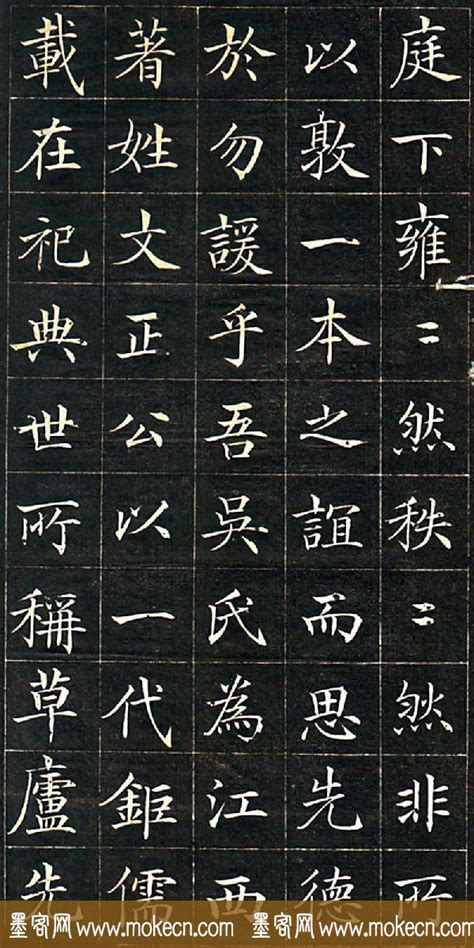 庭下雍〻然秩〻然非所
以敦一本之誼而思先德
於勿諼乎吾吳氏為江西
著姓文正公以一代鉅儒
載在祀典世所稱草廬先
墨客网 www.mokecn.com 墨客网 www.mokecn.com